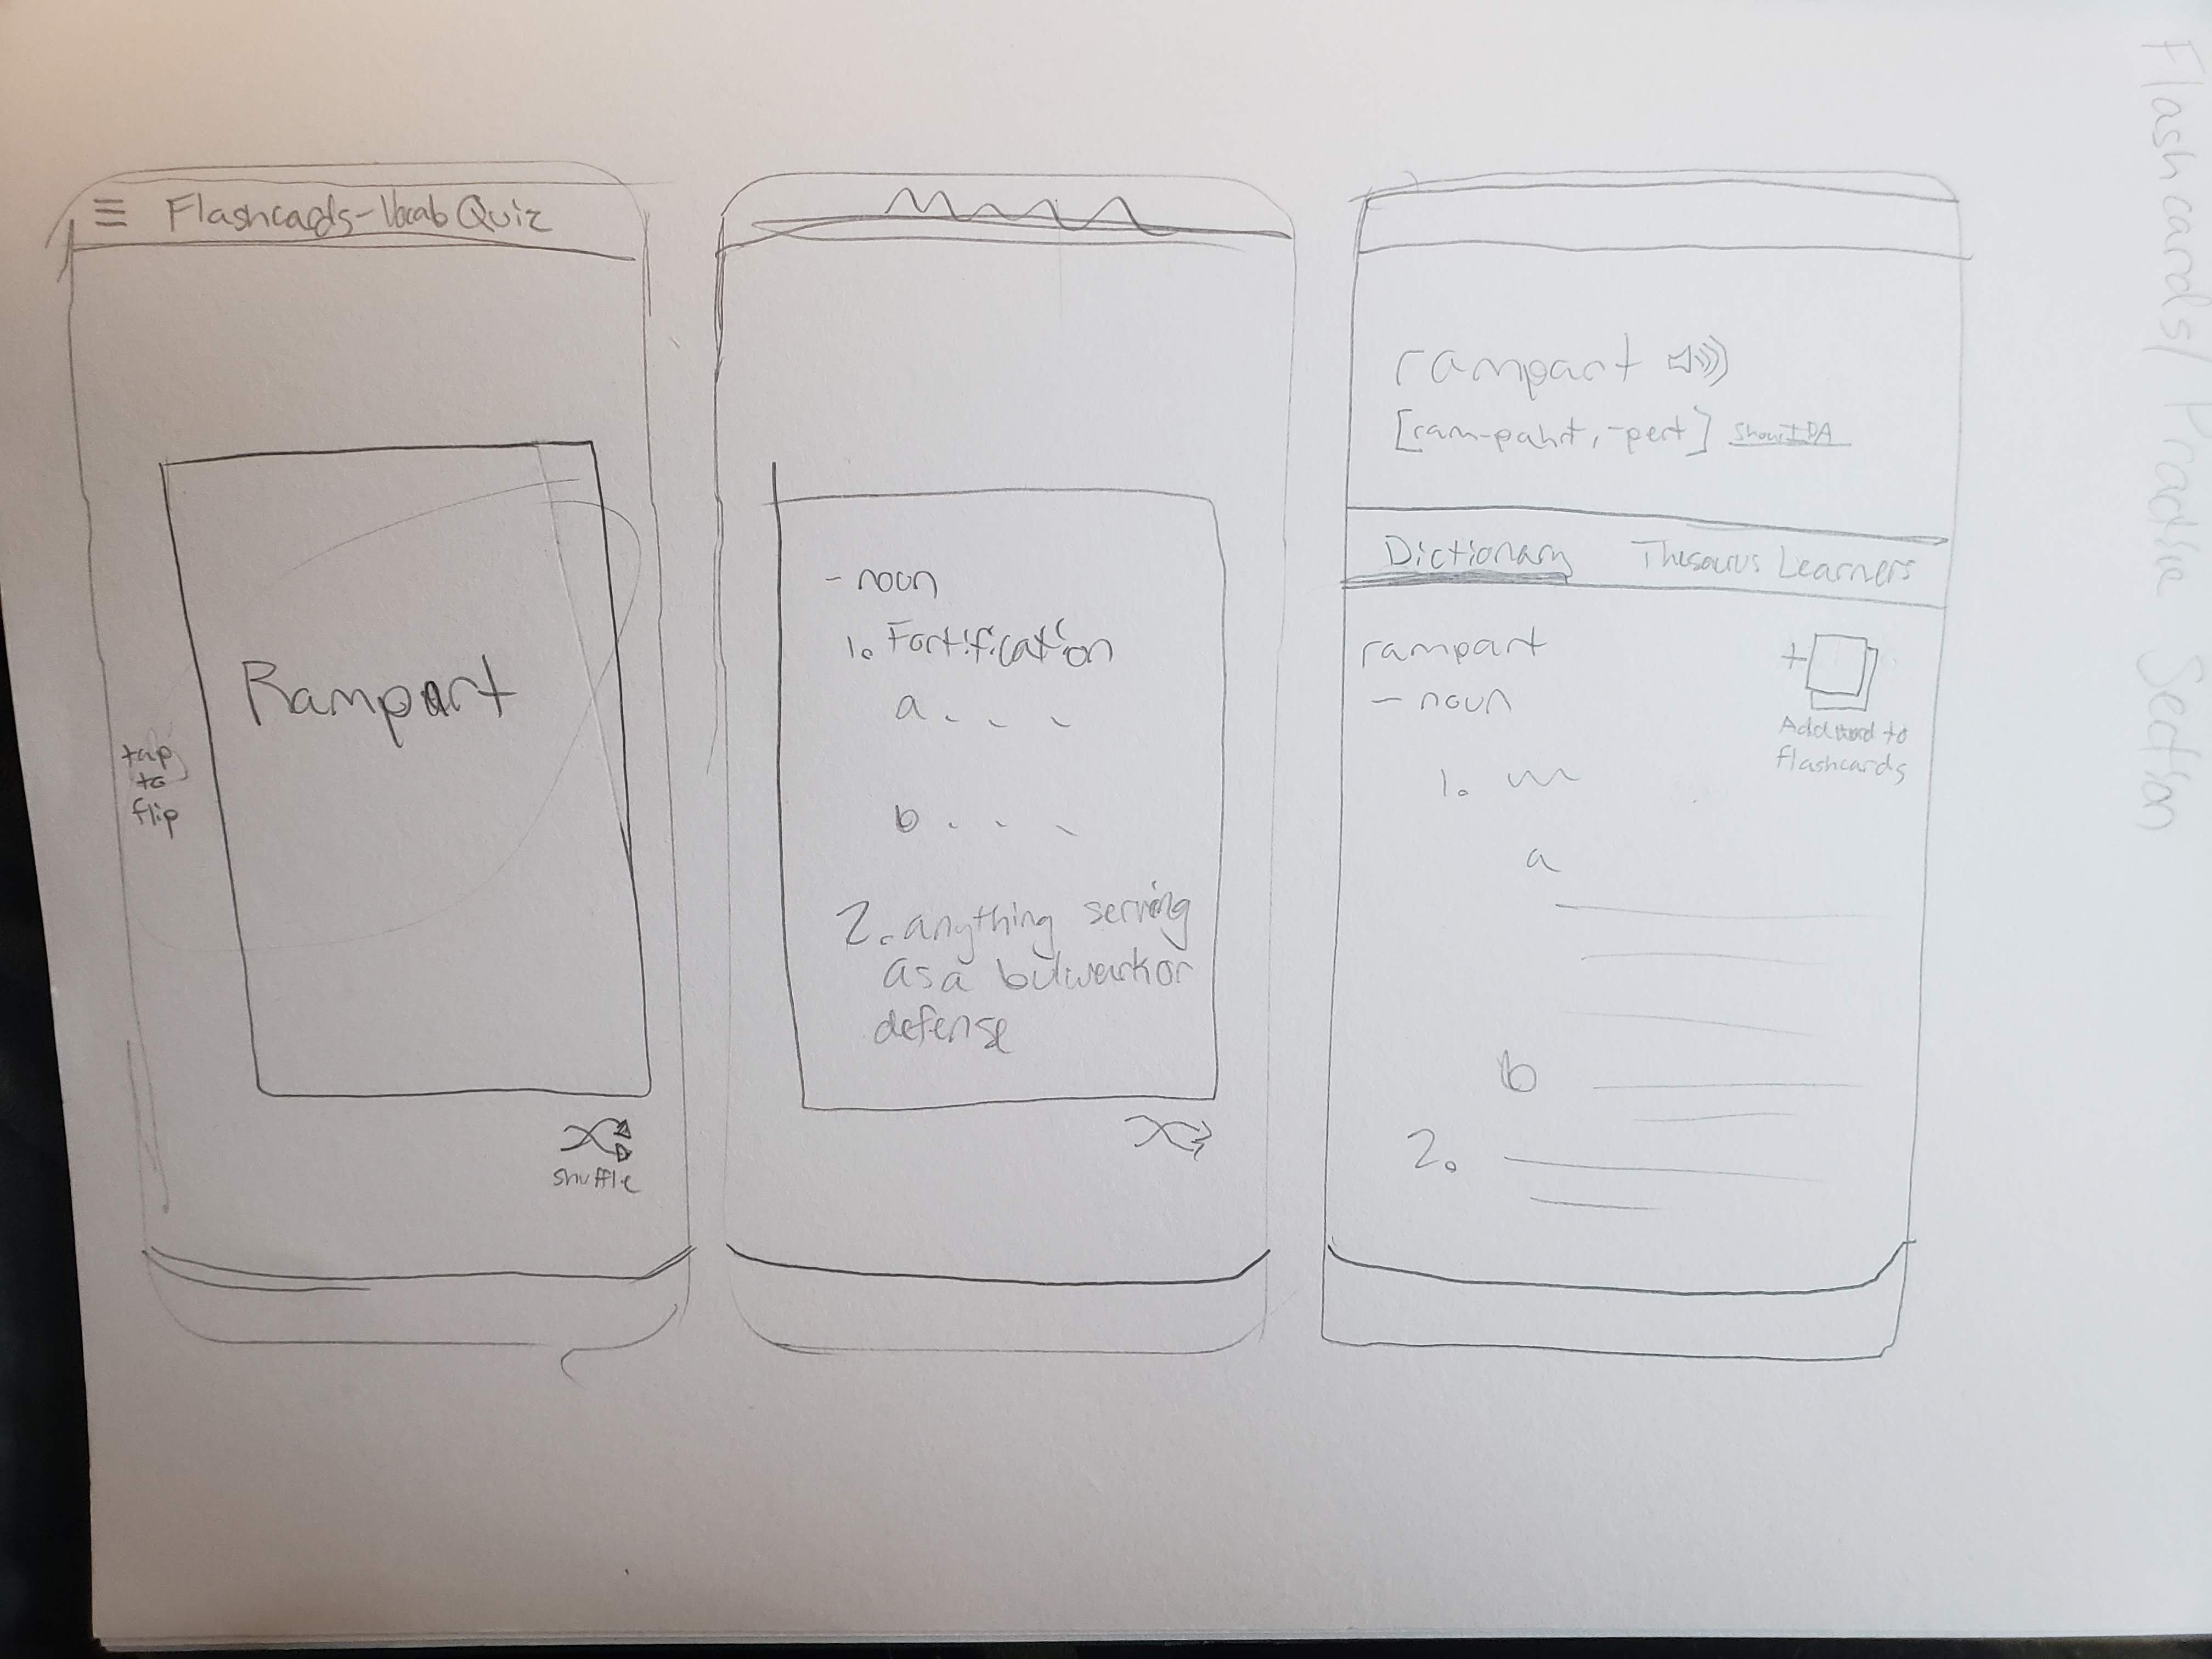 Flashcards/Practise Section
Flashcards-Vocab Quiz
Rampart
tap
to
flip
shuffle
- noun
1. Fortification
a . . .
b . . .
2. anything serving
as a bulwark or
defense
rampart
[ram-pahrt, -pert] Show IPA
Dictionary Thesaurus Learners
rampart
- noun
+
Add word to
flashcards
1.
a
b
2.